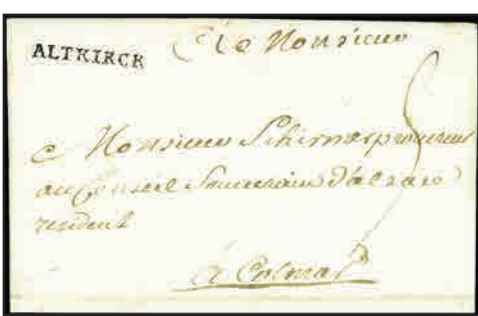 ALTKIRCK
A Monsieur
A Monsieur Schirmer procureur
au Conseil Souverain d'alsace
resident
A Colmar